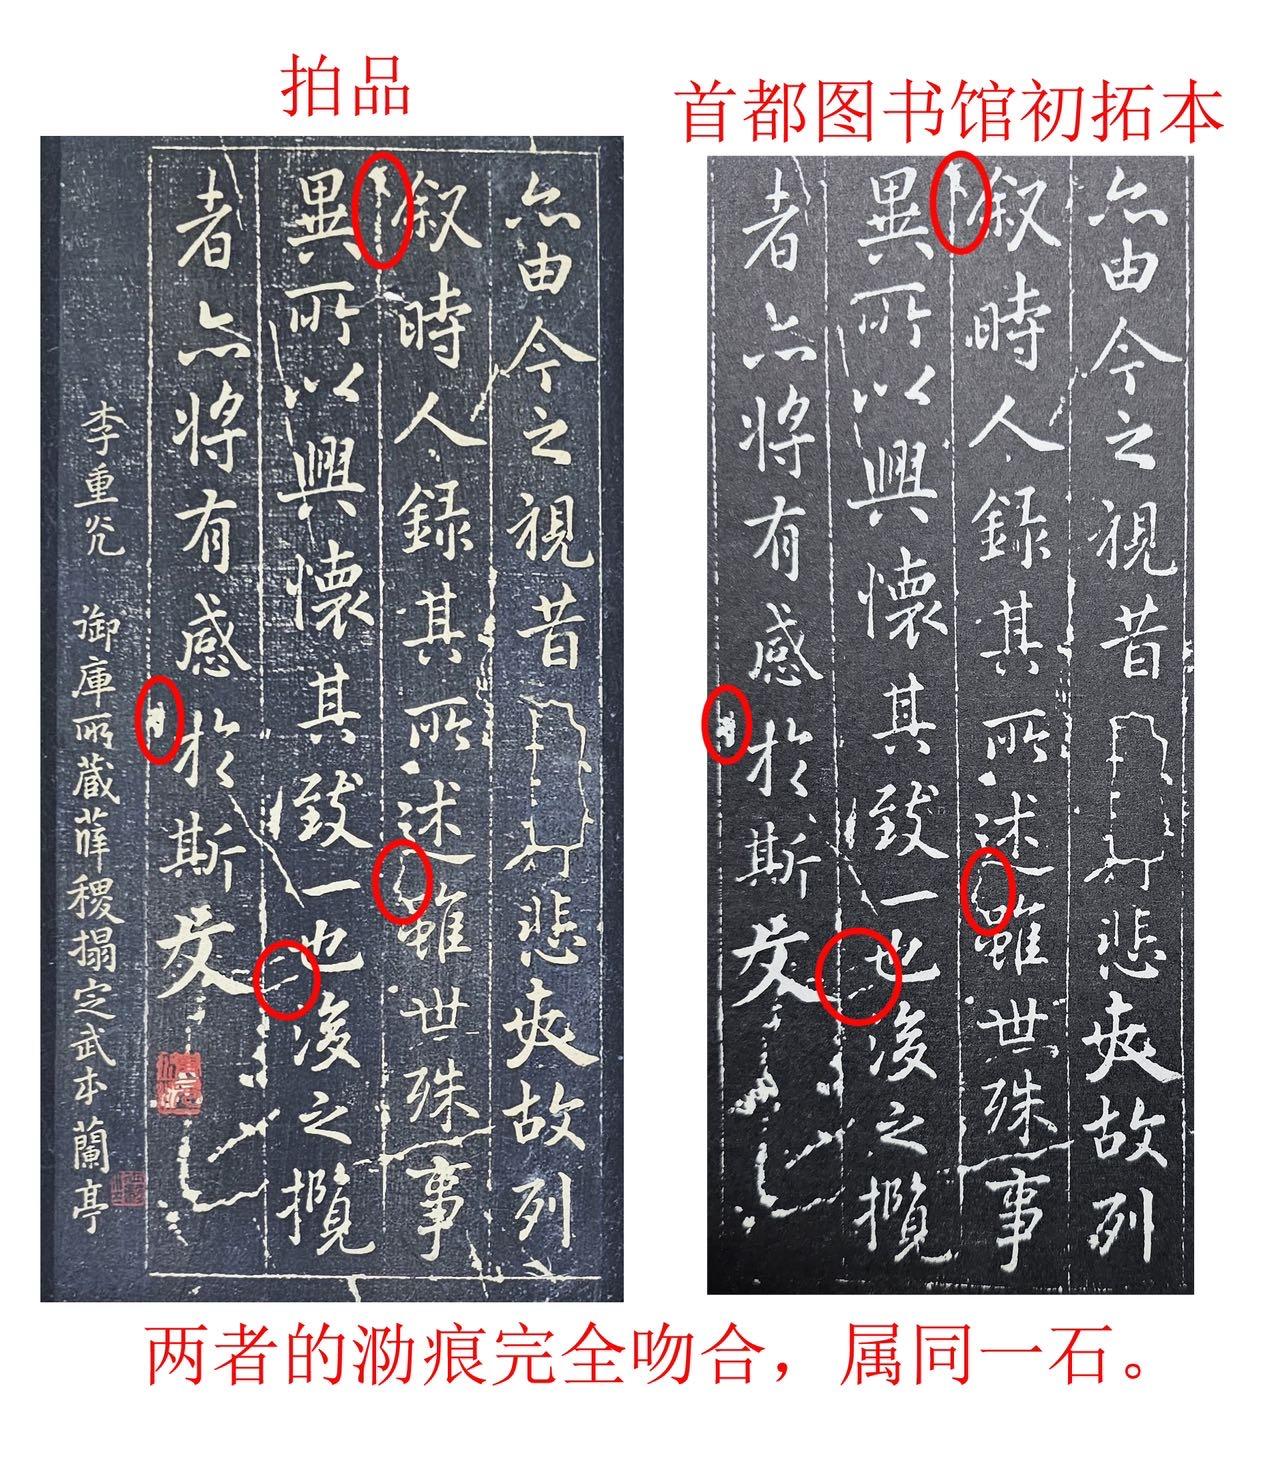 拍品
首都图书馆初拓本
亦由今之視昔
悲夫故列
叙時人録其所述雖世殊事
異所以興懷其致一也後之攬
者亦将有感於斯文
李重光
御庫所蔵薛稷搨定武本蘭亭
亦由今之視昔
悲夫故列
叙時人録其所述雖世殊事
異所以興懷其致一也後之攬
者亦将有感於斯文
两者的泐痕完全吻合，属同一石。